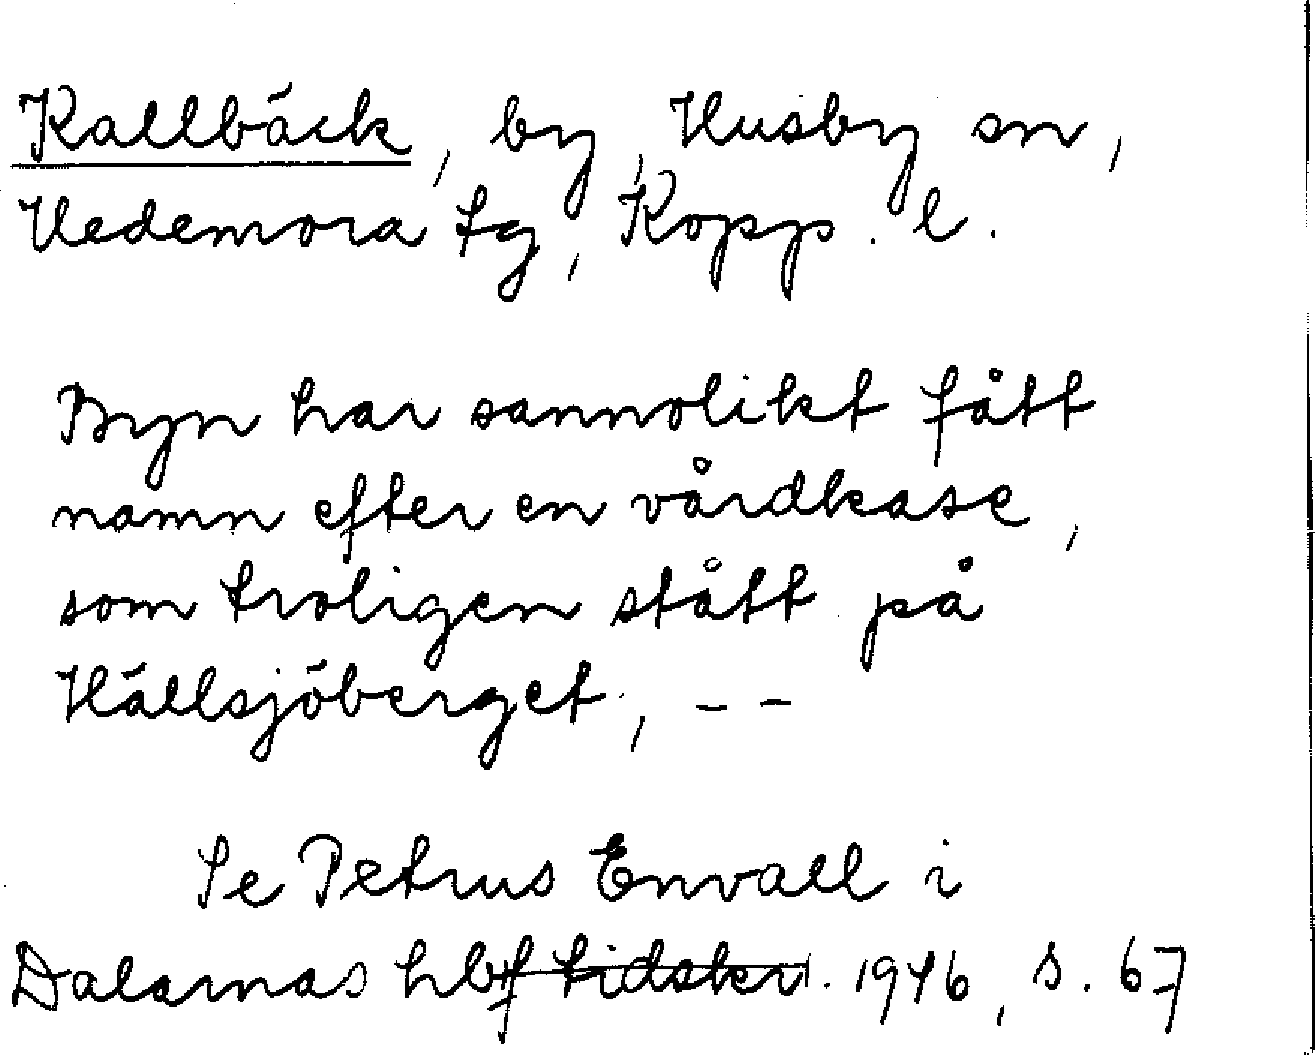 Kallbäck, by, Husby sn,
Hedemora tg, Kopp. l.
Byn har sannolikt fått
namn efter en vårdkase,
som troligen stått på
Hällsjöberget, --
Se Petrus Envall i
Dalarnas hbf tidskr. 1946, s. 67